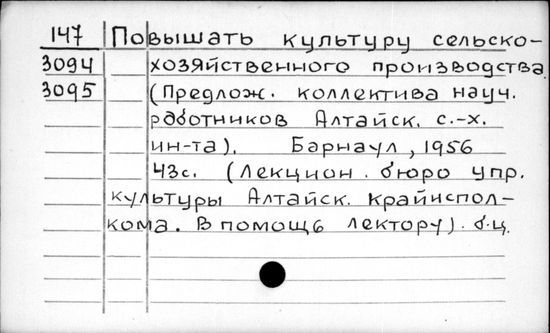 147 Повышать культуру сельско-
3094 хозяйственного производства
3095 (Предлож. коллектива науч.
работников Алтайск. с.-х.
ин-та). Барнаул, 1956
43с. (Лекцион. бюро упр.
культуры Алтайск. крайиспол-
кома. В помощь лектору). б.ц.